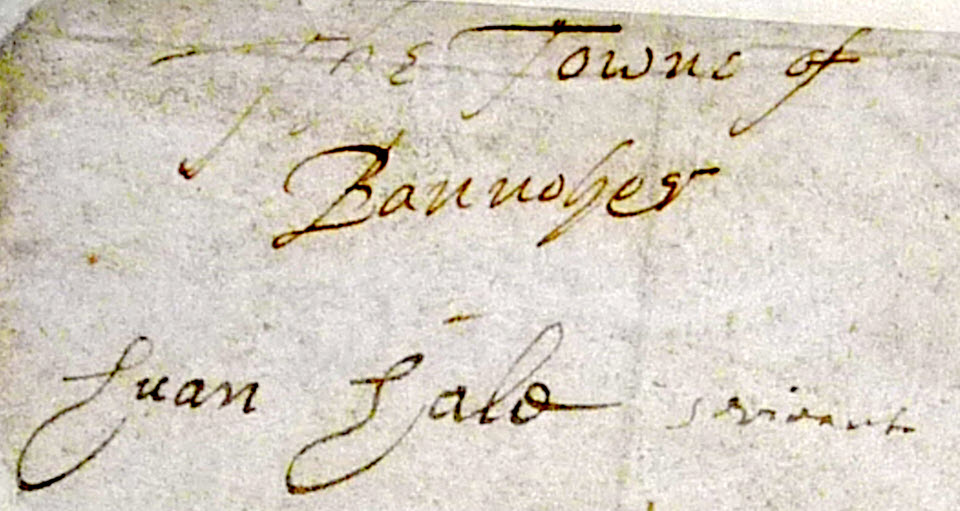 The Towne of
Bannoher
Juan Hale servant